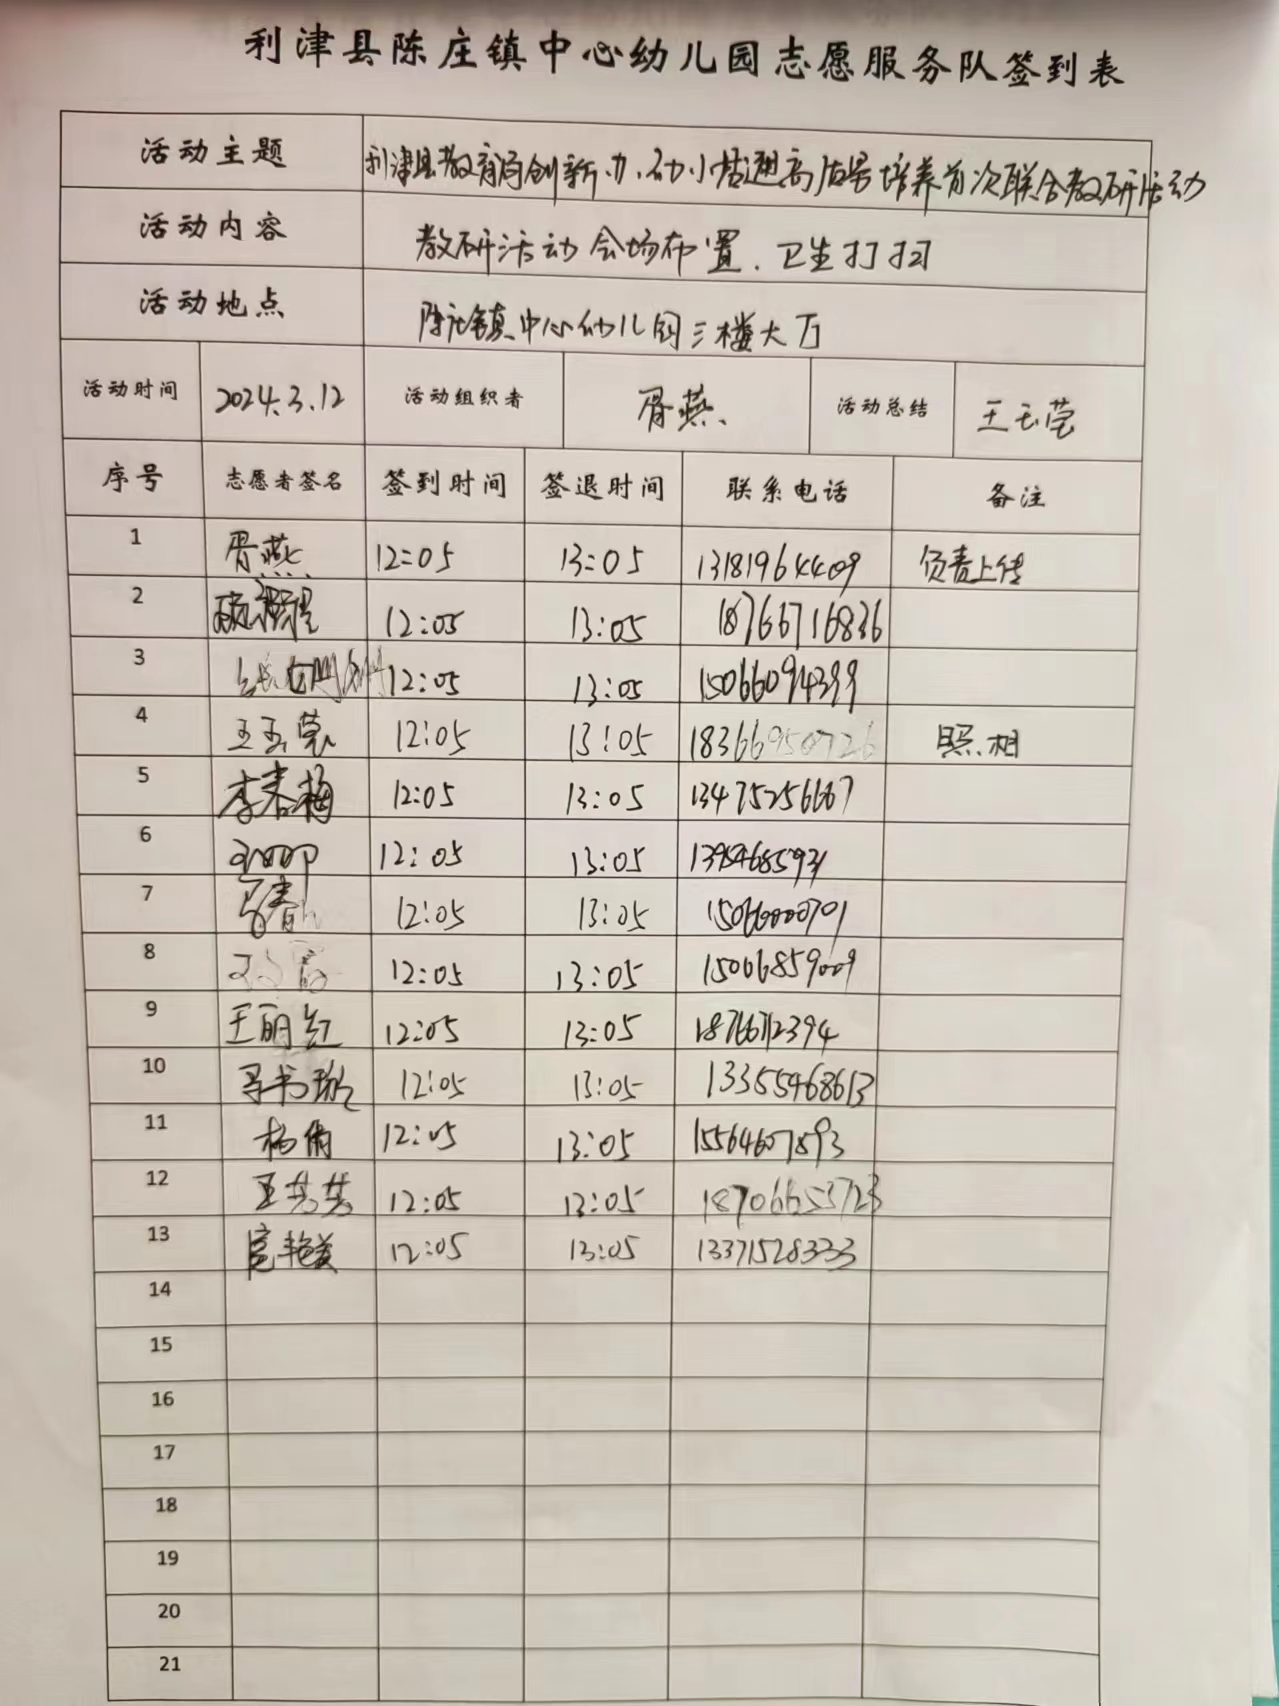 利津县陈庄镇中心幼儿园志愿服务队签到表
活动主题 利津县教育局创新办、幼小普通高 号培养首次联合教研活动
活动内容 教研活动会场布置、卫生打扫
活动地点 陈庄镇中心幼儿园三楼大厅
活动时间 2024.3.12 活动组织者 胥燕 活动总结 王玉莹
序号 志愿者签名 签到时间 签退时间 联系电话 备注
1 胥燕 12:05 13:05 13181964409 负责上传
2 12:05 13:05 18766716836
3 12:05 13:05 15066094399
4 王玉莹 12:05 13:05 18366950726 照相
5 李春梅 12:05 13:05 13475256667
6 12:05 13:05
7 12:05 13:05
8 12:05 13:05
9 王丽红 12:05 13:05
10 12:05 13:05 13355468613
11 杨倩 12:05 13:05 15564607893
12 王芸芸 12:05 13:05 18706653723
13 12:05 13:05 13371528333
14
15
16
17
18
19
20
21